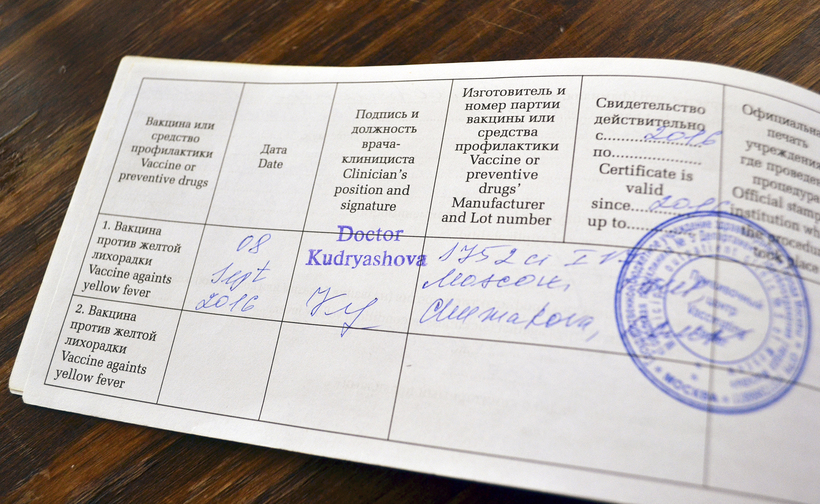 Вакцина или
средство
профилактики
Vaccine or
preventive drugs
Дата
Date
Подпись и
должность
врача-
клинициста
Clinician's
position and
signature
Изготовитель и
номер партии
вакцины или
средства
профилактики
Vaccine or
preventive
drugs'
Manufacturer
and Lot number
Свидетельство
действительно
с............2016
по................
Certificate is
valid
since....2016
up to........
Официальная
печать
учреждения
где проведена
процедура
Official stamp
institution wh
the procedu
took place
1. Вакцина
против желтой
лихорадки
Vaccine againts
yellow fever
08
Sept
2016
Doctor
Kudryashova
1752
Moscow,
Chumakova,
МОСКВА
2. Вакцина
против желтой
лихорадки
Vaccine againts
yellow fever